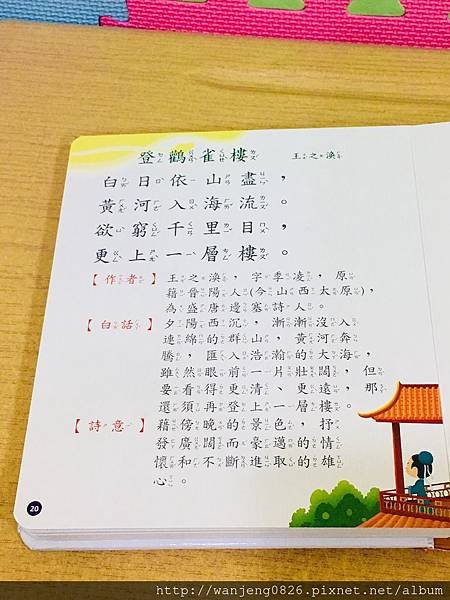 登鸛雀樓 王之渙
白日依山盡，
黃河入海流。
欲窮千里目，
更上一層樓。
【作者】王之渙，字季凌，原
籍晉陽人(今山西太原)，
為盛唐邊塞詩人。
【白話】夕陽西沉，漸漸沒入
連綿的群山，黃河奔
騰，匯入浩瀚的大海，
雖然眼前一片壯闊，但
要看得更清、更遠，那
還須再登上一層樓。
【詩意】藉傍晚的景色，抒
發廣闊而豪邁的情
懷和不斷進取的雄
心。
20
http://wanjeng0826.pixnet.net/album